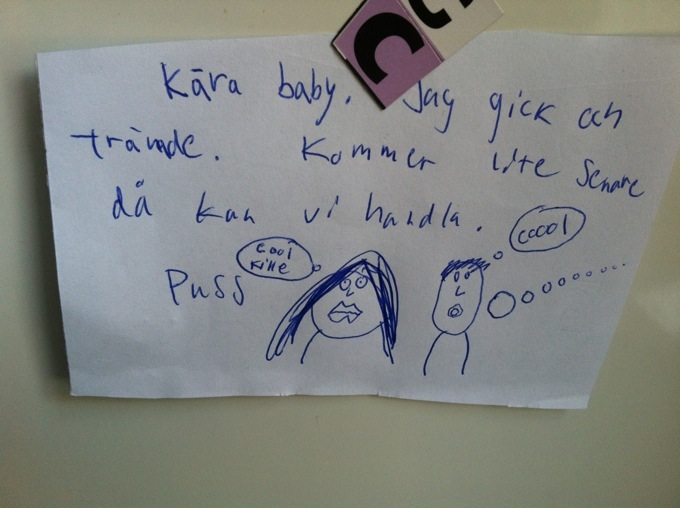 C
Kära baby. Jag gick och
tränade. Kommer lite senare
då kan vi handla.
Puss
cool
kille
coool